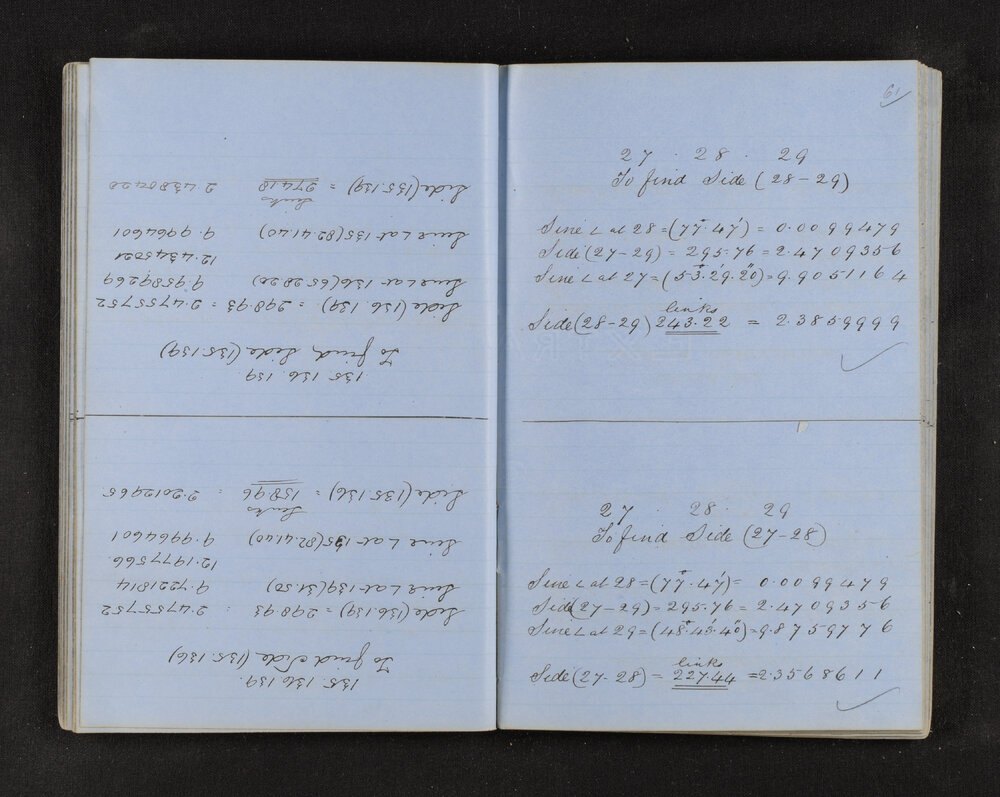 135. 136 139.
To find Side (135. 136)
Side (136.139) = 298.93 : 2.4755752
Sine ∠ at 139 (31.50) 9.7221814
12.1977566
Sine ∠ at 135 (82.41.40) 9.9964601
Links
Side (135 136) = 158.96 = 2.2012965
135 136 139
To find Side (135.139)
Side (136 139) = 298.93 = 2.4755752
Sine ∠ at 136 (65.28.20) 9.9589269
12.4345021
Sine ∠ at 135 (82.41.40) 9.9964601
Links
Side (135.139) = 274.18 2.4380420
61
27 . 28 . 29
To find Side (28-29)
Sine ∠ at 28 = (77°.47') = 0.0099479
Side (27-29) = 295.76 = 2.4709356
Sine ∠ at 27 = (53°.29'.20") = 9.9051164
links
Side (28-29) 243.22 = 2.3859999
27 28 29
To find Side (27-28)
Sine ∠ at 28 = (77°.47') = 0.0099479
Side (27-29) = 295.76 = 2.4709356
Sine ∠ at 29 = (48°.43'.40") = 9.8759776
links
Side (27-28) = 227.44 = 2.3568611